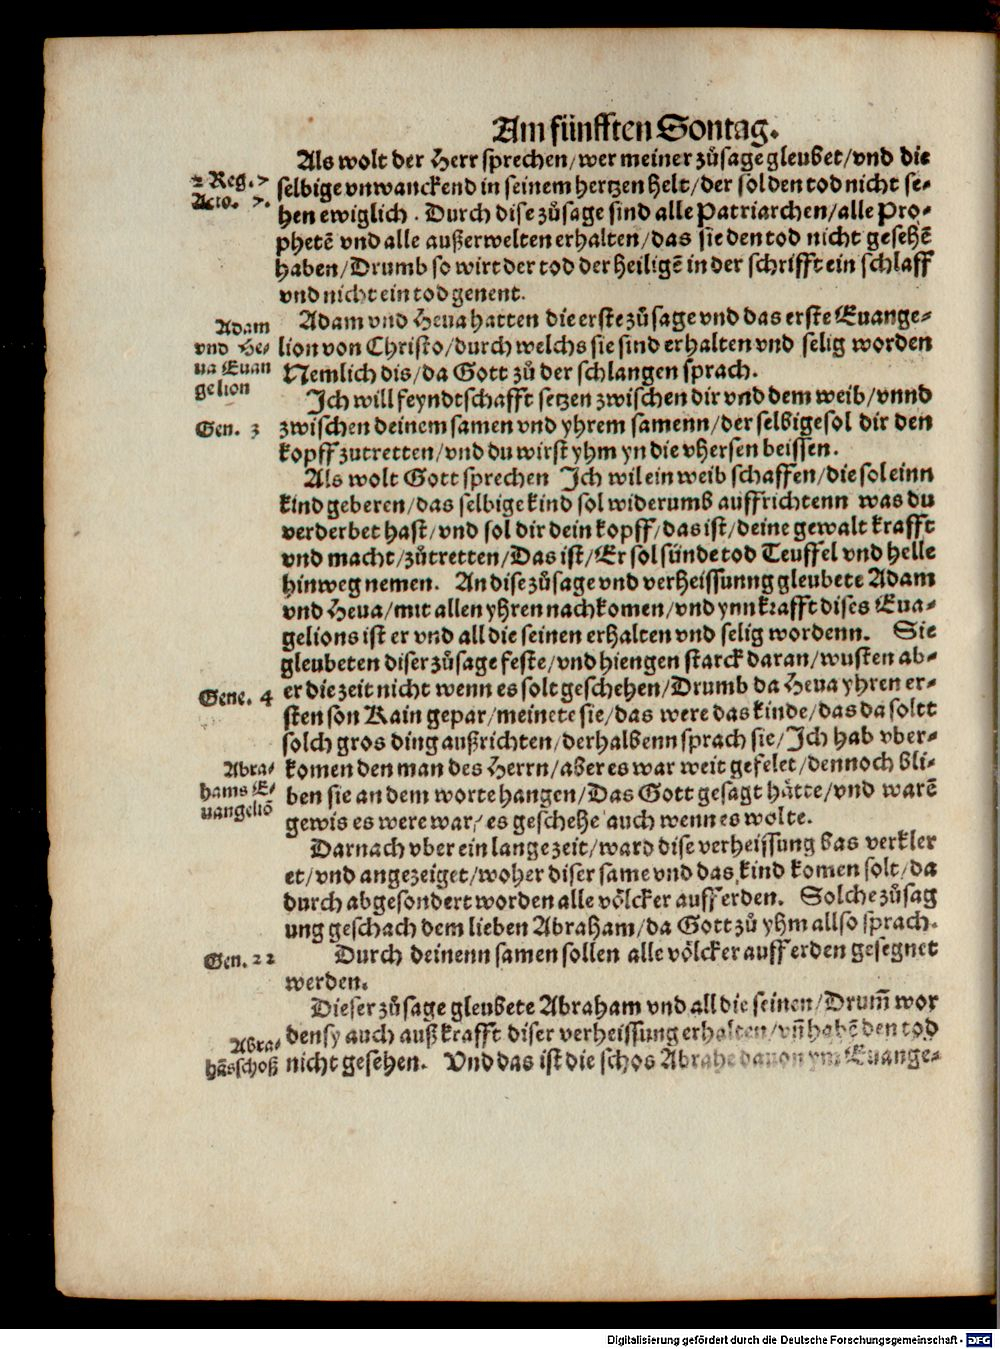 Am fünfften Sontag.
Als wolt der Herr sprechen/wer meiner zůsage gleubet/vnd die
2 Reg. 7
Acto. 7.
selbige vnwanckend in seinem hertzen helt/der sol den tod nicht se-
hen ewiglich. Durch dise zůsage sind alle Patriarchen/alle Pro-
phetē vnd alle außerwelten erhalten/das sie den tod nicht gesehē
haben/Drumb so wirt der tod der heiligē in der schrifft ein schlaff
vnd nicht ein tod genent.
Adam
vnd He-
ua Euan
gelion
Adam vnd Heua hatten die erste zůsage vnd das erste Euange-
lion von Christo/durch welchs sie sind erhalten vnd selig worden
Nemlich dis/da Gott zů der schlangen sprach.
Ich will feyndtschafft setzen zwischen dir vnd dem weib/vnnd
Gen. 3
zwischen deinem samen vnd yhrem samenn/der selbige sol dir den
kopff zutretten/vnd du wirst yhm yn die vhersen beissen.
Als wolt Gott sprechen Ich wil ein weib schaffen/die sol einn
kind geberen/das selbige kind sol widerumb auffrichtenn was du
verderbet hast/vnd sol dir dein kopff/das ist/deine gewalt krafft
vnd macht/zůtretten/Das ist/Er sol sünde tod Teuffel vnd helle
hinweg nemen. An dise zůsage vnd verheissunng gleubete Adam
vnd Heua/mit allen yhren nachkomen/vnd ynn krafft dises Eua-
gelions ist er vnd all die seinen erhalten vnd selig wordenn. Sie
gleubeten diser zůsage feste/vnd hiengen starck daran/wusten ab-
Gene. 4
er die zeit nicht wenn es solt geschehen/Drumb da Heua yhren er-
sten son Kain gepar/meinete sie/das were das kinde/das da soltt
solch gros ding außrichten/derhalbenn sprach sie/Ich hab vber-
Abra-
hams E-
uangeliō
komen den man des Herrn/aber es war weit gefelet/dennoch bli-
ben sie an dem worte hangen/Das Gott gesagt hätte/vnd warē
gewis es were war/es geschehe auch wenn es wolte.
Darnach vber ein lange zeit/ward dise verheissung bas verkler
et/vnd angezeiget/woher diser same vnd das kind komen solt/da
durch abgesondert worden alle völcker auff erden. Solche zůsag
ung geschach dem lieben Abraham/da Gott zů yhm allso sprach.
Gen. 22
Durch deinenn samen sollen alle völcker auff erden gesegnet
werden.
Dieser zůsage gleubete Abraham vnd all die seinen/Drum̄ wor
Abra-
hās schoß
den sy auch auß krafft diser verheissung erhalten/vn̄ habē den tod
nicht gesehen. Vnd das ist die schos Abrahe dauon ym Euange-
Digitalisierung gefördert durch die Deutsche Forschungsgemeinschaft - DFG